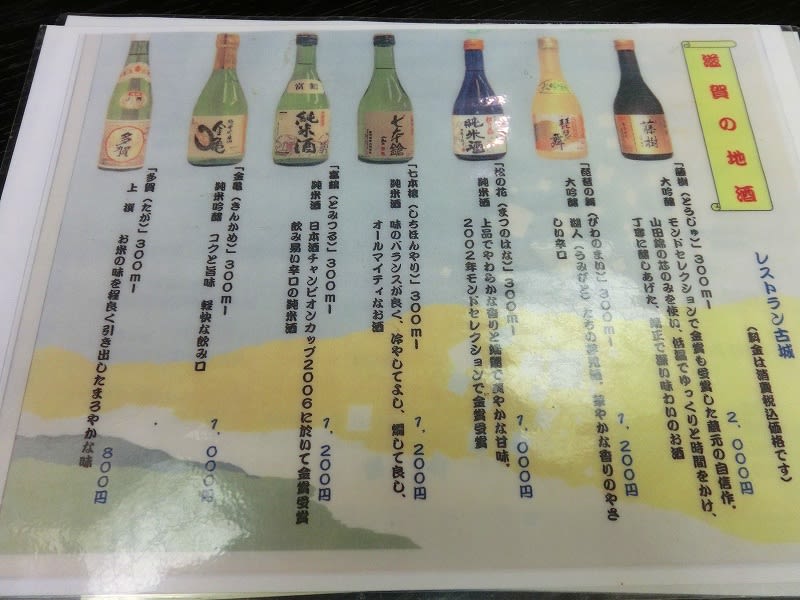 滋賀の地酒
レストラン古城
(料金は消費税込価格です)
「藤樹(とうじゅ)」300ml
大吟醸 モンドセレクションで金賞も受賞した蔵元の自信作。 2,000円
山田錦の芯のみを使い、低温でゆっくりと時間をかけ、
丁寧に醸しあげた、端正で深い味わいのお酒
「琵琶の舞(びわのまい)」300ml
大吟醸 湖人(うみびと)たちの夢見酒、華やかな香りのやさ
しい辛口 1,200円
「松の花(まつのはな)」300ml
純米酒 上品でやわらかな香りと端麗で爽やかな甘味。
2002年モンドセレクションで金賞受賞 1,000円
「七本槍(しちほんやり)」300ml
純米酒 味のバランスが良く、冷やしてよし、燗して良し、
オールマイティなお酒 1,200円
「富鶴(とみつる)」300ml
純米酒 日本酒チャンピオンカップ2006に於いて金賞受賞
飲み易い辛口の純米酒 1,200円
「金亀(きんかめ)」300ml
純米吟醸 コクと旨味 軽快な飲み口 1,000円
「多賀(たが)」300ml
上撰 お米の味を程良く引き出したまろやかな味 800円
藤樹
琵琶の舞
純米酒
七本鎗
富鶴
純米酒
金亀
多賀